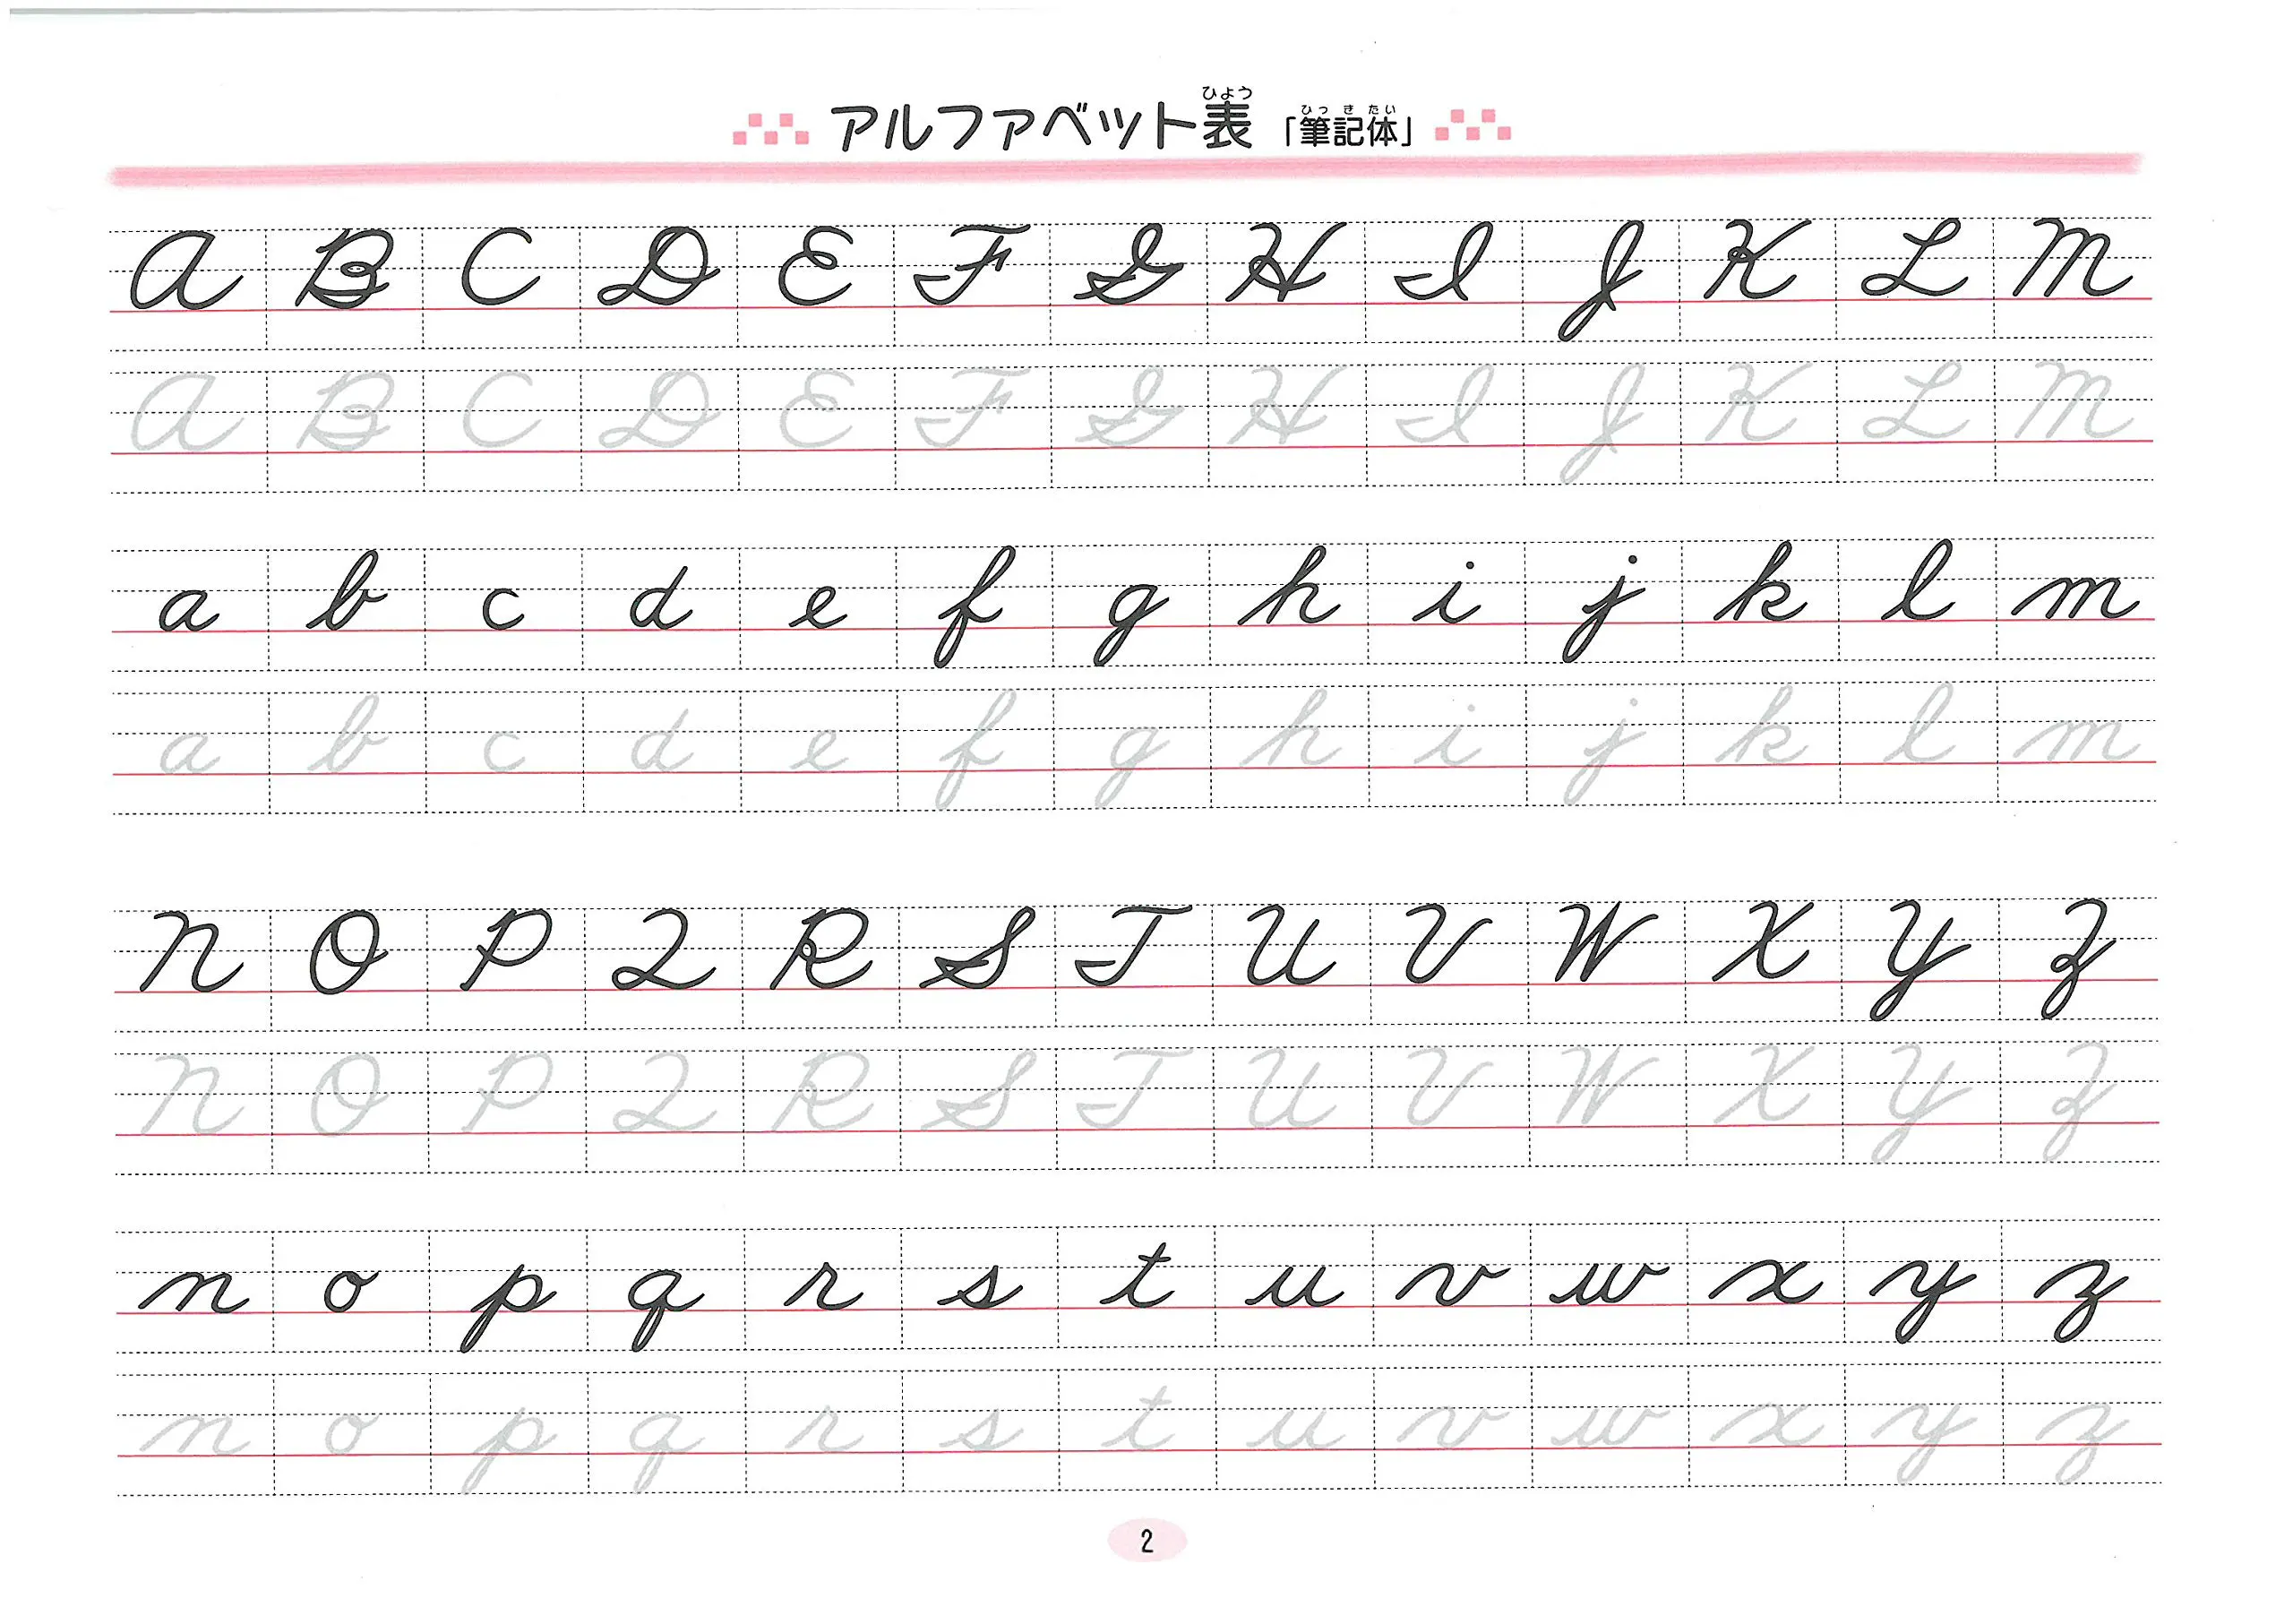 アルファベット表「筆記体」
A B C D E F G H I J K L M
A B C D E F G H I J K L M
a b c d e f g h i j k l m
a b c d e f g h i j k l m
N O P Q R S T U V W X Y Z
N O P Q R S T U V W X Y Z
n o p q r s t u v w x y z
n o p q r s t u v w x y z
2